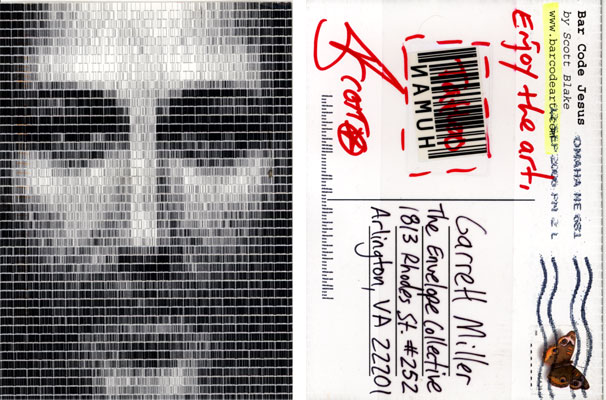 Bar Code Jesus
by Scott Blake
www.barcodeart.com
OMAHA NE 681
SEP 2006 PM 2 L
Enjoy the art,
HUMAN
Scott
Garrett Miller
The Envelope Collective
1813 Rhodes St. #252
Arlington, VA 22201